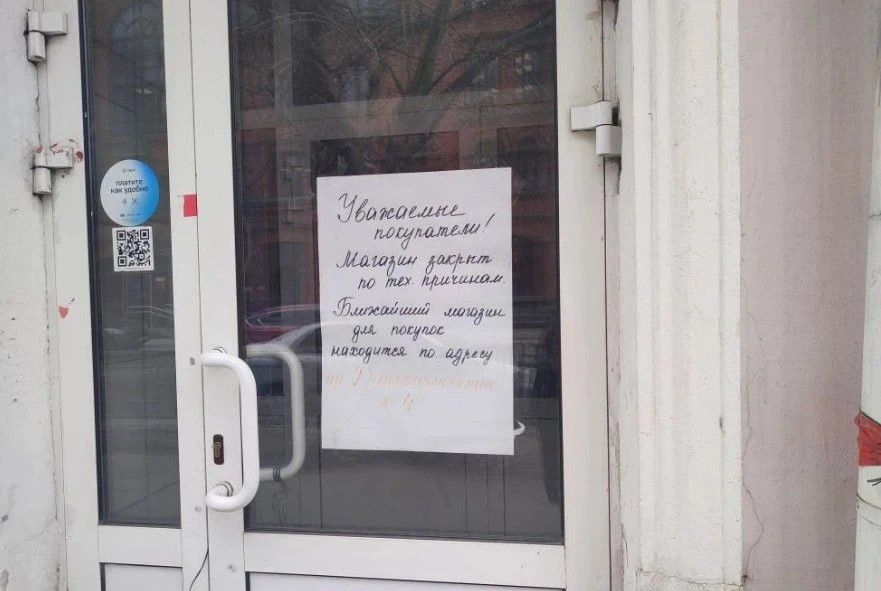 СБЕР
платите
как удобно
Уважаемые
покупатели!
Магазин закрыт
по тех. причинам.
Ближайший магазин
для покупок
находится по адресу
пр.